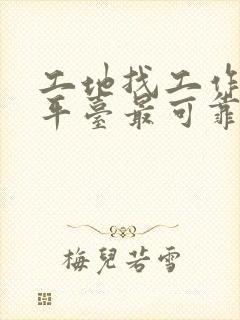 工地找工作
平臺最可靠
梅兒若雪